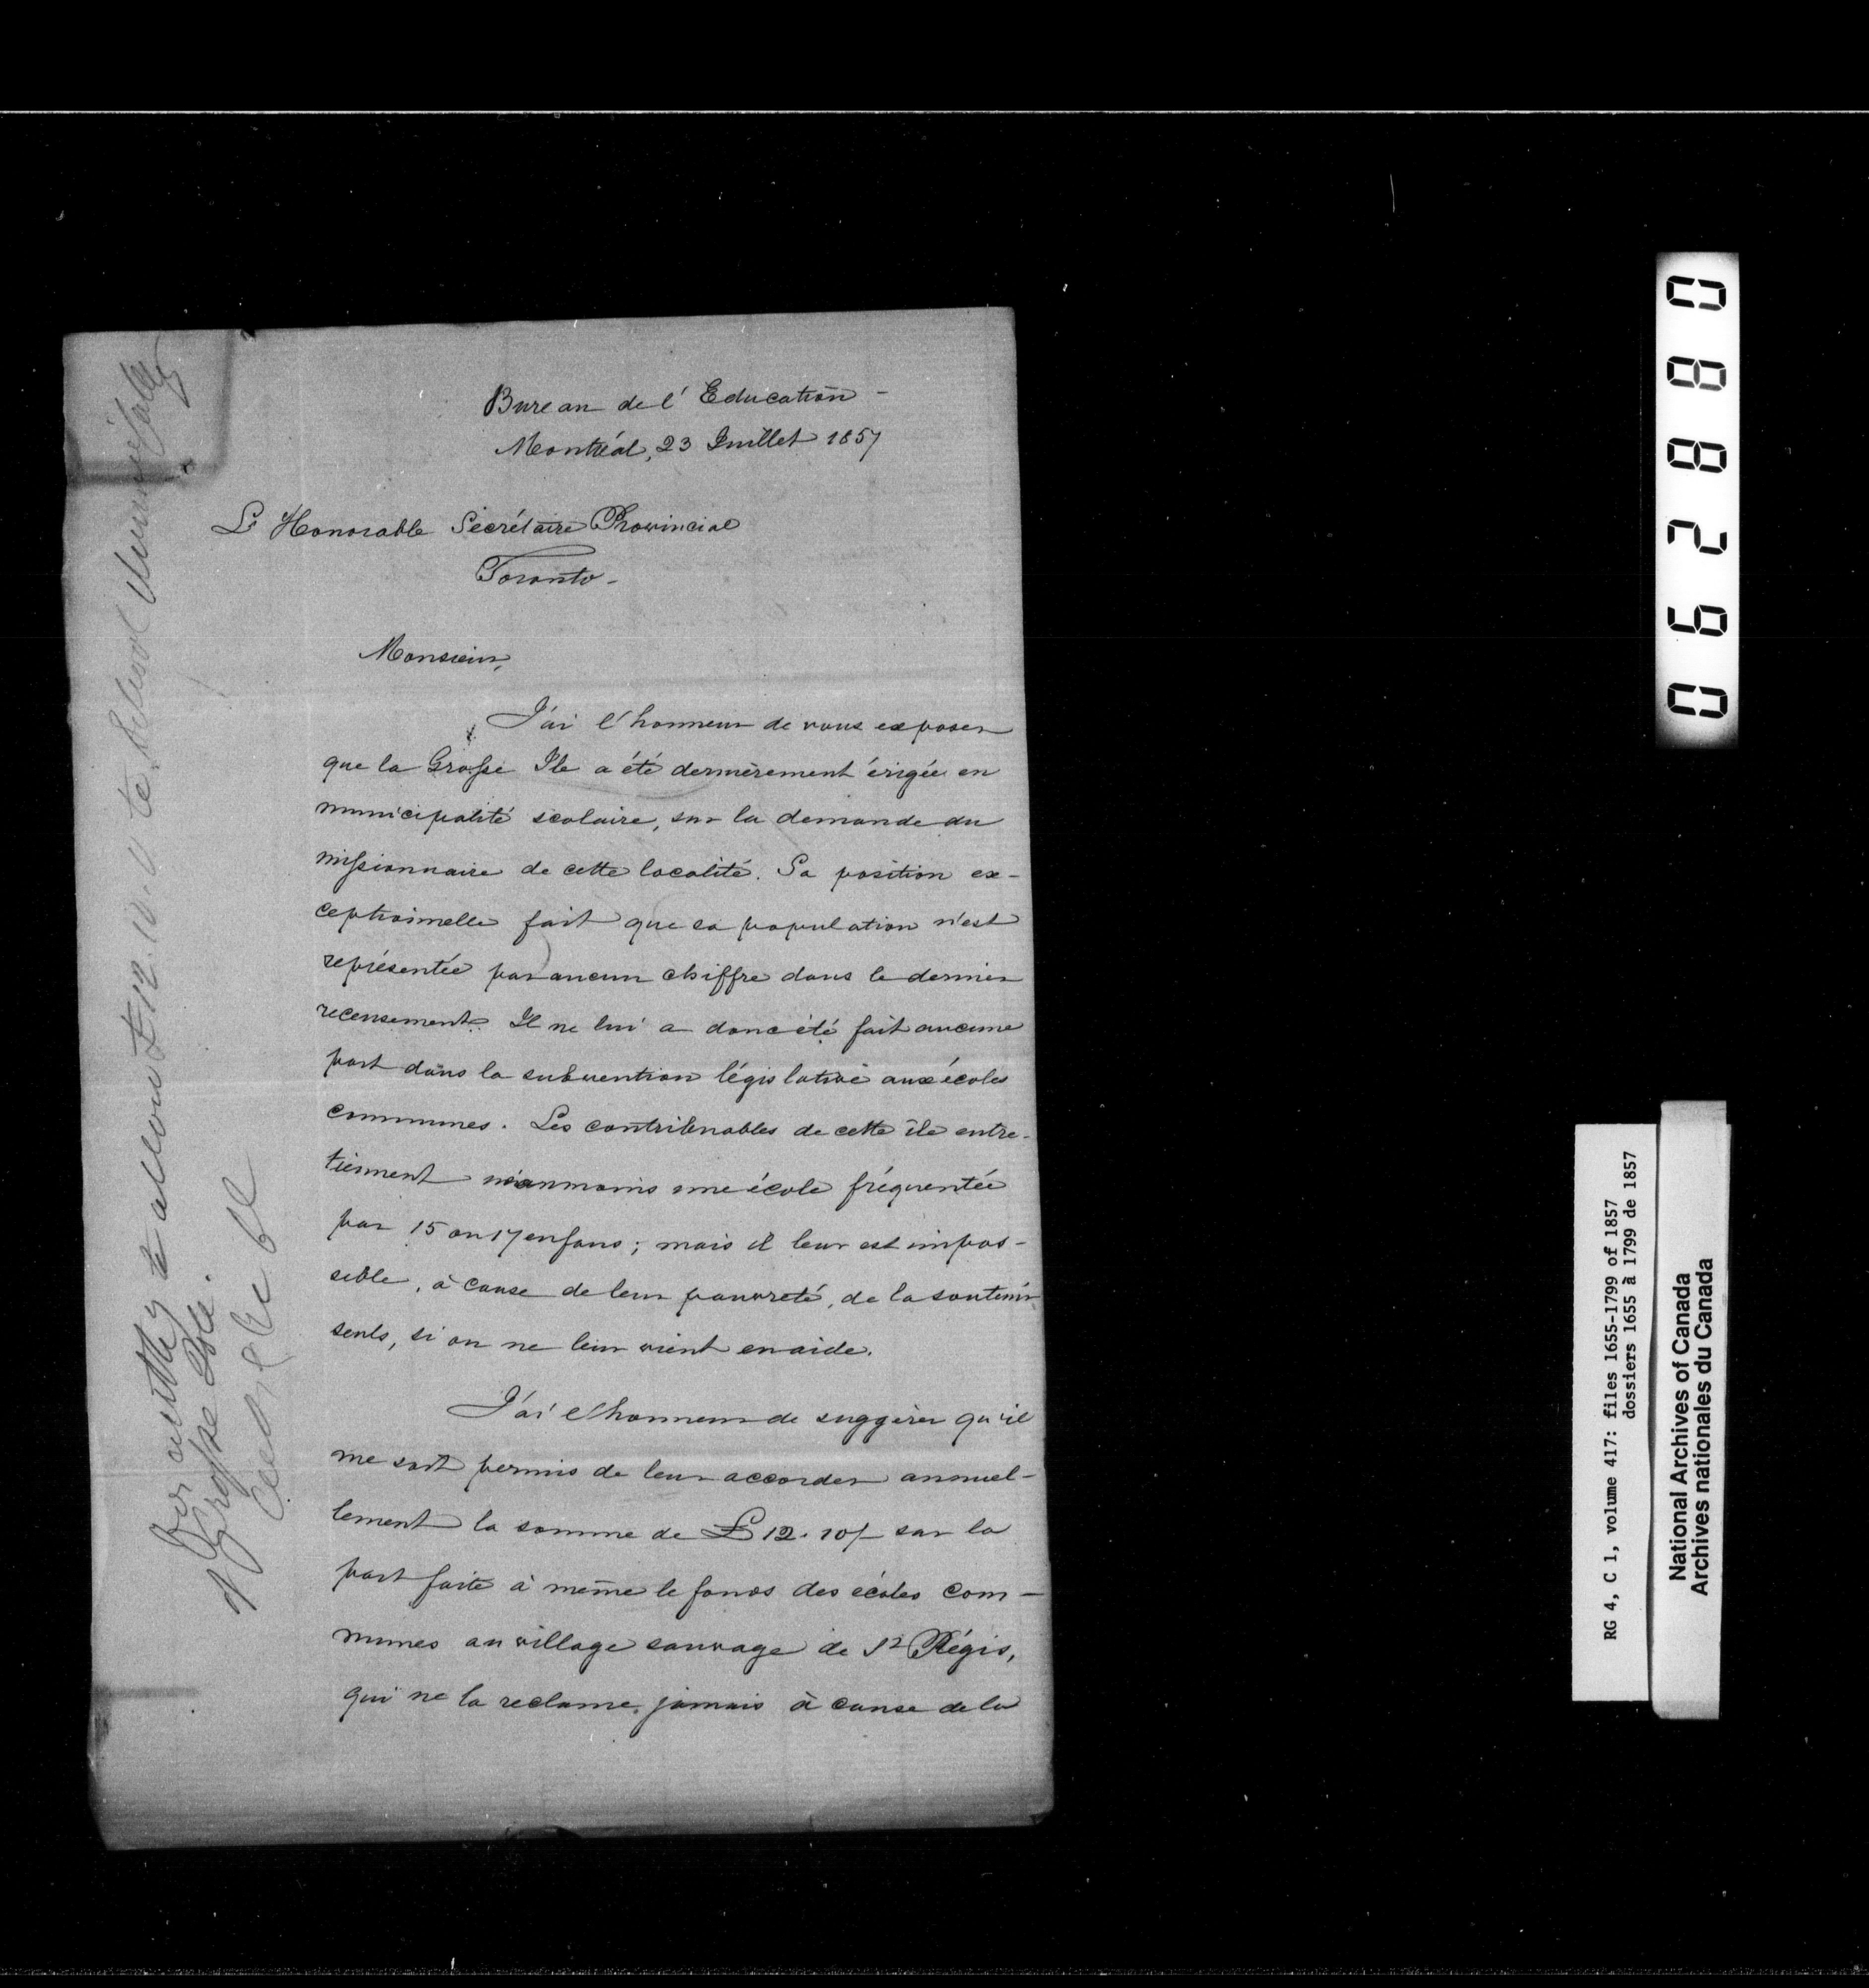 Bureau de l'Education -
Montréal, 23 Juillet 1857
L'Honorable Secrétaire Provincial
Toronto -
Monsieur,
J'ai l'honneur de vous exposer
que la Grosse Ile a été dernièrement érigée en
municipalité scolaire, sur la demande du
missionnaire de cette localité. Sa position ex-
ceptionnelle fait que sa population n'est
représentée par aucun chiffre dans le dernier
recensement. Il ne lui a donc été fait aucune
part dans la subvention législative aux écoles
communes. Les contribuables de cette île entre-
tiennent néanmoins une école fréquentée
par 15 ou 17 enfans; mais il leur est impos-
sible, à cause de leur pauvreté, de la soutenir
seuls, si on ne leur vient en aide.
J'ai l'honneur de suggérer qu'il
me soit permis de leur accorder annuel-
lement la somme de £12.10/- sur la
part faite à même le fonds des écoles com-
munes au village sauvage de St Régis,
qui ne la reclame jamais à cause de la
For authy to allow £12.10.0 to School Municipality
of Grosse Isle.
062880
RG 4, C 1, volume 417: files 1655-1799 of 1857
dossiers 1655 à 1799 de 1857
National Archives of Canada
Archives nationales du Canada